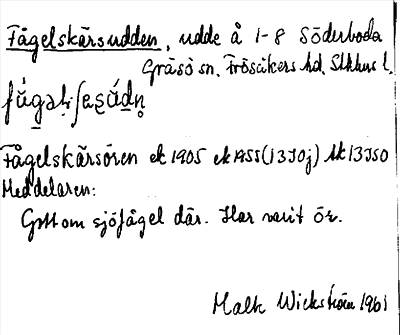 Fågelskärsudden, udde å 1-8 Söderboda
Gräsö sn, Frösåkers hd, Sthlms l.
Fågelskärsören ek 1905 ek 1955 (13J0j) tk 13J50
Meddelaren:
Gott om sjöfågel där. Har varit ör.
Malte Wickström 1961